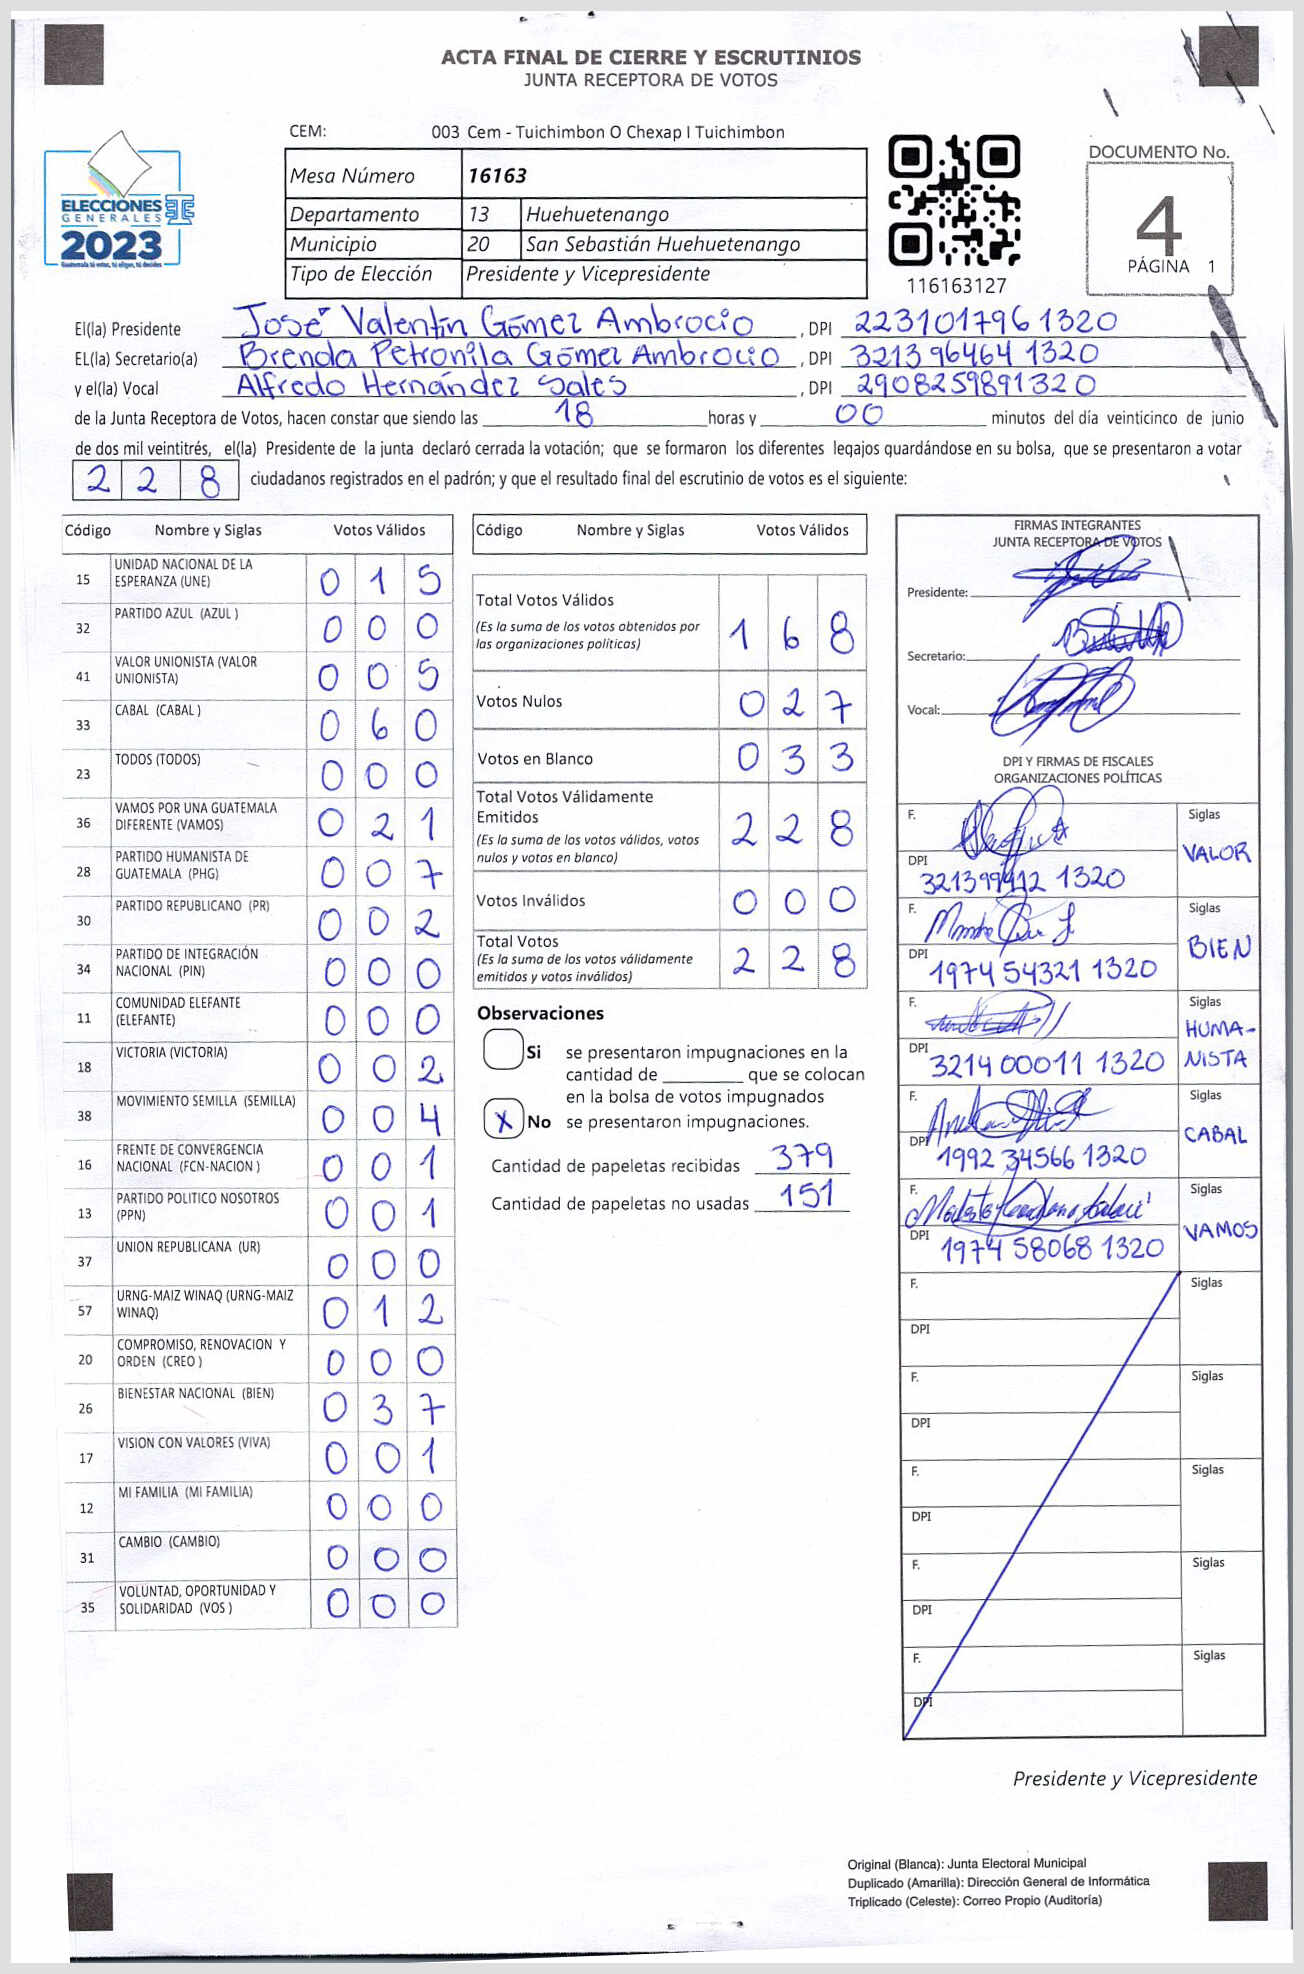 ACTA FINAL DE CIERRE Y ESCRUTINIOS
JUNTA RECEPTORA DE VOTOS
CEM: 003 Cem - Tuichimbon O Chexap I Tuichimbon
ELECCIONES
GENERALES
2023
Guatemala tú votas, tú eliges, tú decides
Mesa Número 16163
Departamento 13 Huehuetenango
Municipio 20 San Sebastián Huehuetenango
Tipo de Elección Presidente y Vicepresidente
116163127
DOCUMENTO No.
4
PÁGINA 1
El(la) Presidente José Valentín Gómez Ambrocio, DPI 2231017961320
EL(la) Secretario(a) Brenda Petronila Gómez Ambrocio, DPI 3213964641320
y el(la) Vocal Alfredo Hernández Sales, DPI 2908259891320
de la Junta Receptora de Votos, hacen constar que siendo las 18 horas y 00 minutos del día veinticinco de junio
de dos mil veintitrés, el(la) Presidente de la junta declaró cerrada la votación; que se formaron los diferentes legajos guardándose en su bolsa, que se presentaron a votar
2 2 8 ciudadanos registrados en el padrón; y que el resultado final del escrutinio de votos es el siguiente:
Código Nombre y Siglas Votos Válidos
15 UNIDAD NACIONAL DE LA ESPERANZA (UNE) 0 1 5
32 PARTIDO AZUL (AZUL ) 0 0 0
41 VALOR UNIONISTA (VALOR UNIONISTA) 0 0 5
33 CABAL (CABAL ) 0 6 0
23 TODOS (TODOS) 0 0 0
36 VAMOS POR UNA GUATEMALA DIFERENTE (VAMOS) 0 2 1
28 PARTIDO HUMANISTA DE GUATEMALA (PHG) 0 0 7
30 PARTIDO REPUBLICANO (PR) 0 0 2
34 PARTIDO DE INTEGRACIÓN NACIONAL (PIN) 0 0 0
11 COMUNIDAD ELEFANTE (ELEFANTE) 0 0 0
18 VICTORIA (VICTORIA) 0 0 2
38 MOVIMIENTO SEMILLA (SEMILLA) 0 0 4
16 FRENTE DE CONVERGENCIA NACIONAL (FCN-NACION ) 0 0 1
13 PARTIDO POLITICO NOSOTROS (PPN) 0 0 1
37 UNION REPUBLICANA (UR) 0 0 0
57 URNG-MAIZ WINAQ (URNG-MAIZ WINAQ) 0 1 2
20 COMPROMISO, RENOVACION Y ORDEN (CREO ) 0 0 0
26 BIENESTAR NACIONAL (BIEN) 0 3 7
17 VISION CON VALORES (VIVA) 0 0 1
12 MI FAMILIA (MI FAMILIA) 0 0 0
31 CAMBIO (CAMBIO) 0 0 0
35 VOLUNTAD, OPORTUNIDAD Y SOLIDARIDAD (VOS ) 0 0 0
Código Nombre y Siglas Votos Válidos
Total Votos Válidos 1 6 8
(Es la suma de los votos obtenidos por
las organizaciones políticas)
Votos Nulos 0 2 7
Votos en Blanco 0 3 3
Total Votos Válidamente
Emitidos 2 2 8
(Es la suma de los votos válidos, votos
nulos y votos en blanco)
Votos Inválidos 0 0 0
Total Votos 2 2 8
(Es la suma de los votos válidamente
emitidos y votos inválidos)
Observaciones
Si se presentaron impugnaciones en la
cantidad de ________ que se colocan
en la bolsa de votos impugnados
X No se presentaron impugnaciones.
Cantidad de papeletas recibidas 379
Cantidad de papeletas no usadas 151
FIRMAS INTEGRANTES
JUNTA RECEPTORA DE VOTOS
Presidente:
Secretario:
Vocal:
DPI Y FIRMAS DE FISCALES
ORGANIZACIONES POLÍTICAS
F. Siglas VALOR
DPI 321399412 1320
F. Siglas BIEN
DPI 1974 54321 1320
F. Siglas HUMA-
NISTA
DPI 3214 00011 1320
F. Siglas CABAL
DPI 1992 34566 1320
F. Siglas VAMOS
DPI 1974 58068 1320
F. Siglas
DPI
F. Siglas
DPI
F. Siglas
DPI
F. Siglas
DPI
F. Siglas
DPI
Presidente y Vicepresidente
Original (Blanca): Junta Electoral Municipal
Duplicado (Amarilla): Dirección General de Informática
Triplicado (Celeste): Correo Propio (Auditoría)